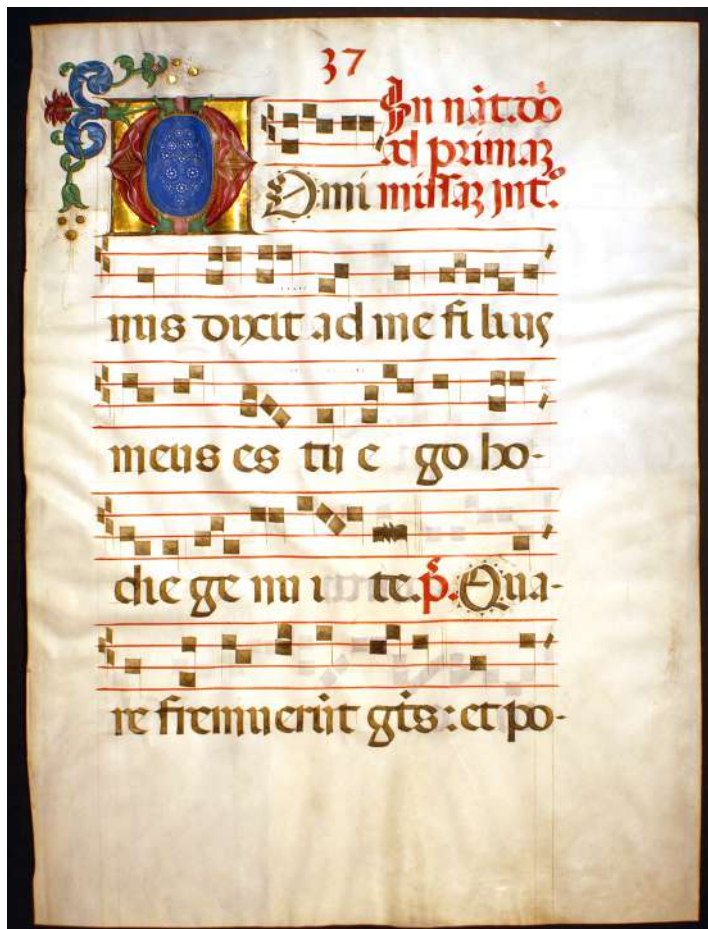 37
In nat. dō
ad primaȝ
Domi missaȝ Int.º
nus dixit ad me filius
meus es tu e go ho-
die ge nu i te. p̄s. Qua-
re fremuerūt gēts: et po-